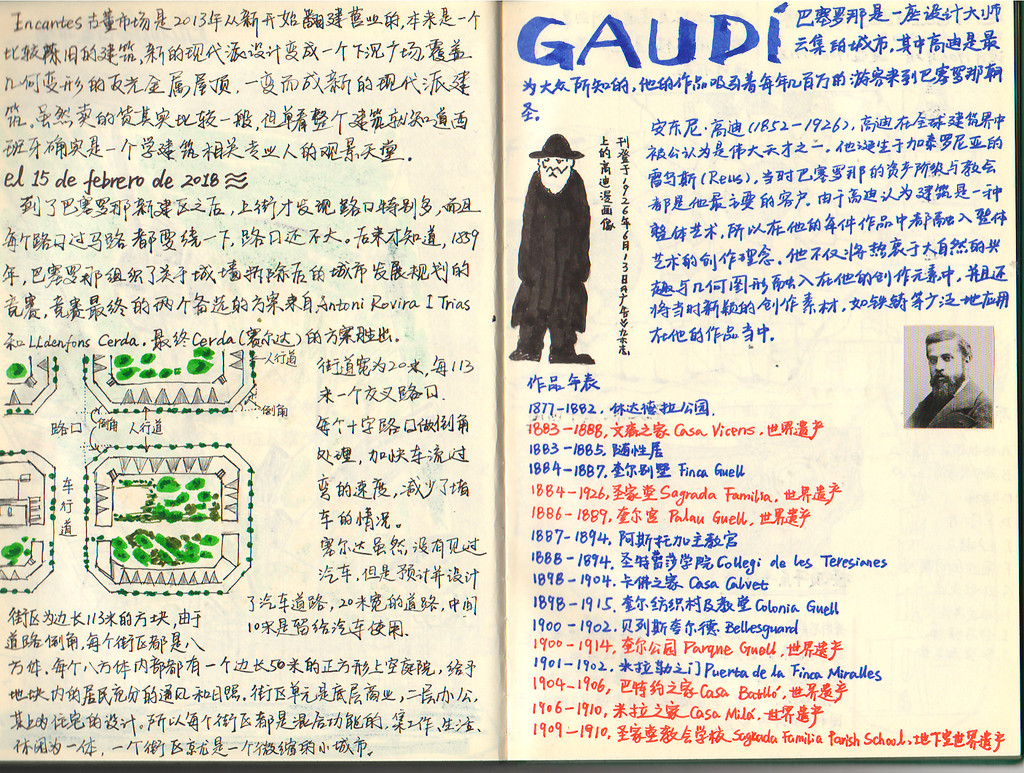 Encantes古董市场是2013年从新开始翻建营业的,本来是一个
比较陈旧的建筑,新的现代派设计变成一个下沉广场,覆盖
几何变形的反光金属屋顶,一变而成新的现代派建
筑。虽然卖的货其实比较一般,但单看整个建筑就知道西
班牙确实是一个学建筑相关专业人的观景天堂。
el 15 de febrero de 2018
到了巴塞罗那新建区之后,上街才发现路口特别多,而且
每个路口过马路都要绕一下,路口还不大。后来才知道,1859
年,巴塞罗那组织了关于城墙拆除后的城市发展规划的
竞赛,竞赛最终的两个备选的方案来自Antoni Rovira I Trias
和LLdenfons Cerda,最终Cerda(塞尔达)的方案胜出。
人行道
倒角
路口
倒角
人行道
车行道
街道宽为20米,每113
米一个交叉路口.
每个十字路口做倒角
处理,加快车流过
弯的速度,减少了堵
车的情况。
塞尔达虽然没有见过
汽车,但是预计并设计
了汽车道路,20米宽的道路,中间
10米是留给汽车使用.
街区为边长113米的方块,由于
道路倒角,每个街区都是八
方体,每个八方体内部都有一个边长50米的正方形上空庭院,给予
地块内的居民充分的通风和日照。街区单元是底层商业,二层办公,
其上为住宅的设计。所以每个街区都是混合功能的,集工作、生活、
休闲为一体,一个街区就是一个微缩的小城市。
GAUDÍ
巴塞罗那是一座设计大师
云集的城市,其中高迪是最
为大众所知的,他的作品吸引着每年几百万的游客来到巴塞罗那朝
圣。
刊登于1926年6月13日
上的高迪漫画像
安东尼·高迪(1852-1926),高迪在全球建筑界中
被公认为是伟大天才之一,他诞生于加泰罗尼亚的
雷乌斯(Reus),当时巴塞罗那的资产阶级与教会
都是他最主要的客户。由于高迪认为建筑是一种
整体艺术,所以在他的每件作品中都融入整体
艺术的创作理念。他不仅将热衷于大自然的兴
趣与几何图形而融入在他的创作元素中,并且还
将当时新颖的创作素材,如铁铸等广泛地应用
在他的作品当中.
作品年表
1877-1882.休达德拉公园.
1883-1888,文森之家 Casa Vicens,世界遗产
1883-1885.随性居
1884-1887.奎尔别墅 Finca Guell
1884-1926,圣家堂 Sagrada Familia,世界遗产
1886-1889,奎尔宫 Palau Guell,世界遗产
1887-1894,阿斯托加主教宫
1888-1894,圣特蕾莎学院 Collegi de les Teresianes
1898-1904.卡佛之家 Casa Calvet
1898-1915.奎尔纺织村及教堂 Colonia Guell
1900-1902.贝列斯夸尔德 Bellesguard
1900-1914.奎尔公园 Parque Guell,世界遗产
1901-1902.米拉勒之门 Puerta de la Finca Miralles
1904-1906,巴特约之家 Casa Batlló,世界遗产
1906-1910,米拉之家 Casa Milá,世界遗产
1909-1910,圣家堂教会学校 Sagrada Familia Parish School,地下室世界遗产